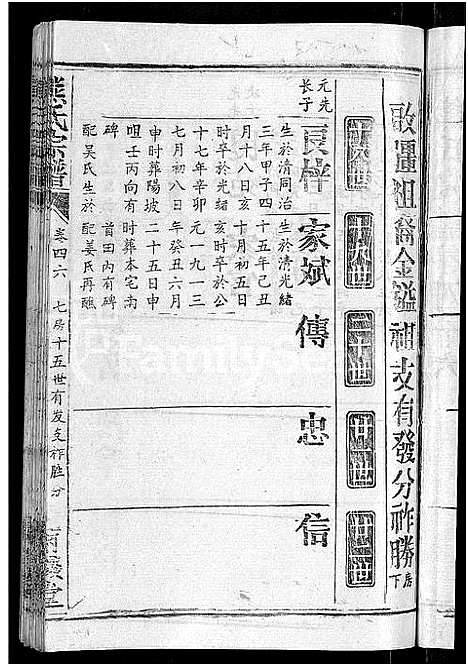 啟疆祖裔金謚祖支有發分祚勝房下
二十世
元先長子
良梓
生於清同治
三年甲子四
月十八日亥
時卒於光緒
十七年辛卯
七月初八日
申時葬陽坡
咀壬丙向有
碑
配吴氏生於
家斌
生於清光緒
十五年己丑
十月初五日
亥時卒於公
元一九一三
年癸丑六月
二十五日申
時葬本宅南
首田內有碑
配姜氏再醮
傳
忠
信
熊氏宗譜
卷四六
七房十五世有发支祚胜分